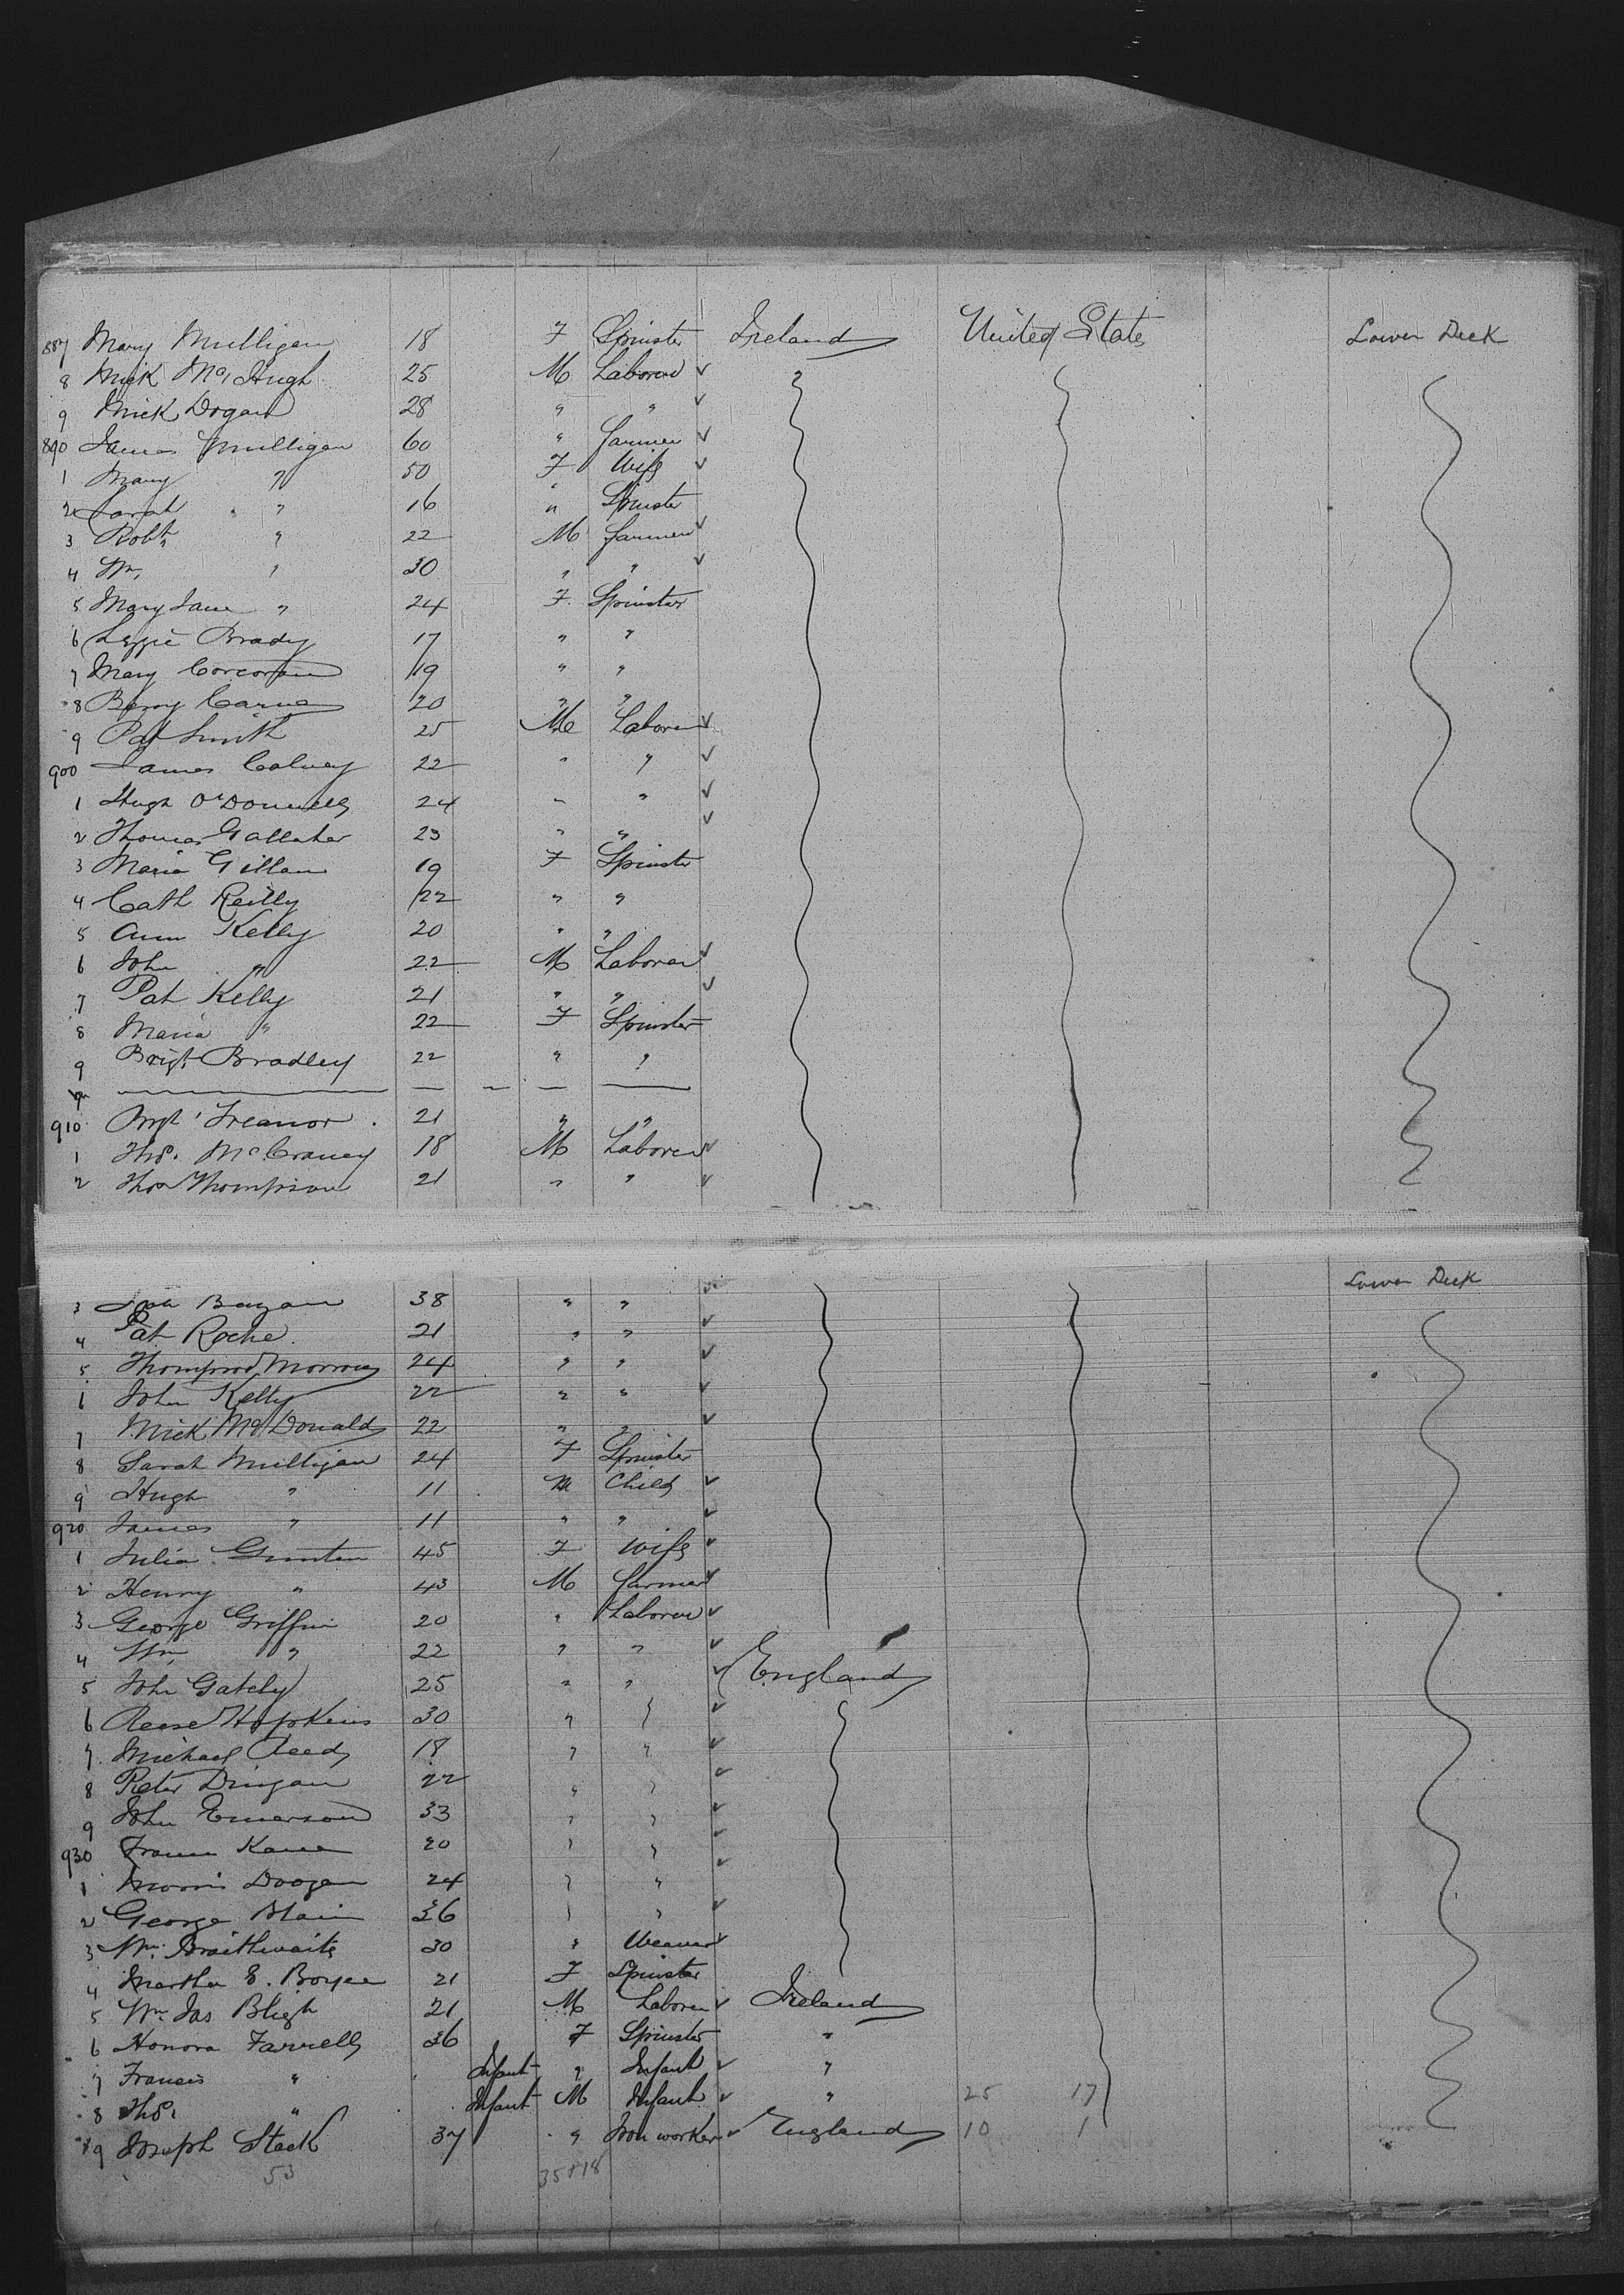 887 Mary Mulligan 18 F Spinster Ireland United States Lower Deck
8 Mick McHugh 25 M Laborer ✓
9 Mick Dogan 28 " " ✓
890 James Mulligan 60 " farmer ✓
1 Mary " 50 F Wife ✓
2 Sarah " 16 " Spinster
3 Robt " 22 M farmer ✓
4 Wm " 30 " " ✓
5 Mary Jane " 24 F. Spinster
6 Lizzie Brady 17 " "
7 Mary Corcoran 19 " "
8 20 " "
9 Pat Smith 25 M Laborer ✓
900 James Calvey 22 " " ✓
1 Hugh O'Donnell 24 " " ✓
2 Thomas Gallaher 23 " " ✓
3 Maria Gillan 19 F Spinster
4 Cath Reilly 22 " "
5 Ann Kelly 20 " "
6 John " 22 M Laborer ✓
7 Pat Kelly 21 " " ✓
8 Maria " 22 F Spinster
9 Brigt Bradley 22 " "
910 Brgt Treanor 21 " "
1 Thos. McCraney 18 M Laborer ✓
2 Thos Thompson 21 " " ✓
Lower Deck
3 38 " " ✓
4 Pat Roche 21 " " ✓
5 Thompson Morrow 24 " " ✓
6 John Kelly 22 " " ✓
7 Mick McDonald 22 " " ✓
8 Sarah Milligan 24 F Spinster
9 Hugh " 11 M Child ✓
920 James " 11 " " ✓
1 Julia 45 F Wife ✓
2 Henry " 43 M farmer ✓
3 George Griffin 20 " Laborer ✓
4 Wm " 22 " " ✓
5 John Gately 25 " " ✓ England
6 Reese Hopkins 30 " " ✓
7 Michael Reed 18 " " ✓
8 Peter Dingan 22 " " ✓
9 John Emerson 33 " " ✓
930 Kane 20 " " ✓
1 Morris Doogan 24 " " ✓
2 George Blain 36 " " ✓
3 Wm. Braithwaite 30 " Weaver ✓
4 Martha E. Boyce 21 F Spinster
5 Wm Jas Bligh 21 M Laborer ✓ Ireland
6 Honora Farrell 36 F Spinster "
7 Francis " Infant " Infant ✓ "
8 Thos. " Infant M Infant ✓ " 25 17
9 Joseph Stack 37 " Iron worker ✓ England 10 1
53 35 + 18